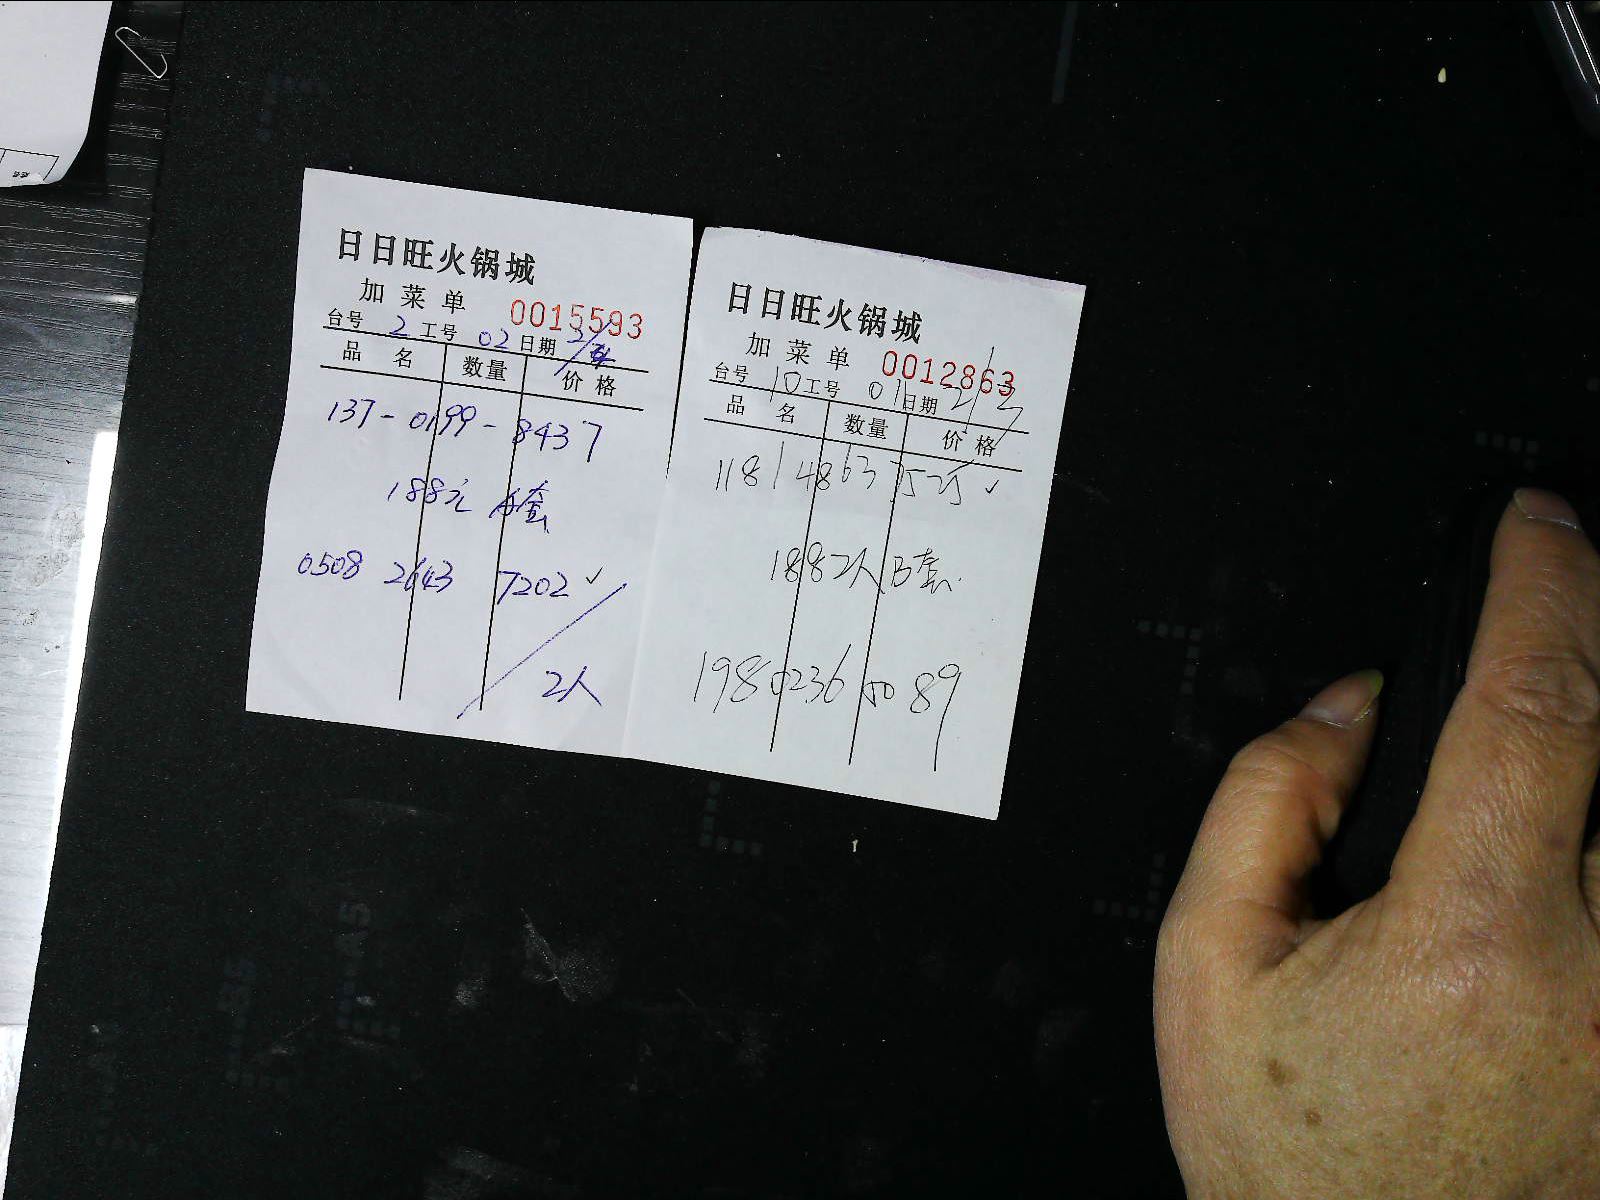 日日旺火锅城
加菜单 0015593
台号 2 工号 02 日期 2/
品名 数量 价格
137-0199-8437
188元 A套
0508 2643 7202 ✓
2人
日日旺火锅城
加菜单 0012863
台号 10 工号 01 日期 2/2
品名 数量 价格
118 1 4863 ✓
188 2人 B套
198 0236 50 89